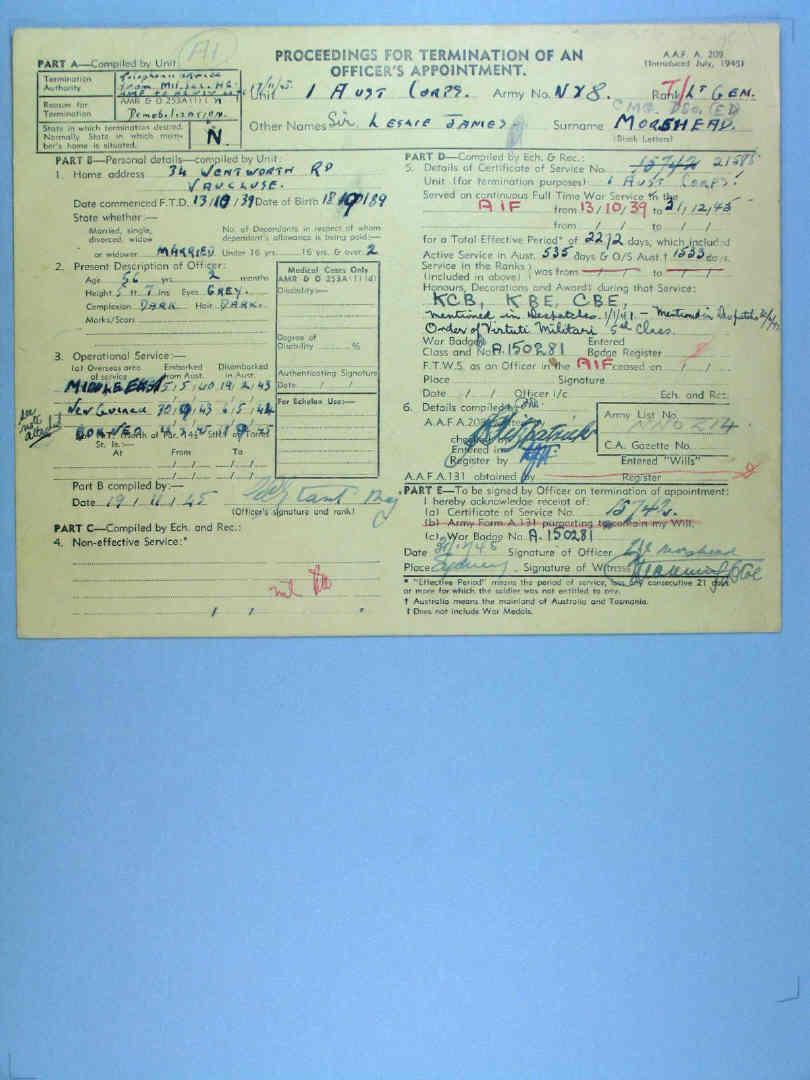 A1
PROCEEDINGS FOR TERMINATION OF AN
OFFICER'S APPOINTMENT.
A.A.F. A. 209
(Introduced July, 1945)
PART A—Compiled by Unit:
Termination
Authority
Telephone advice
from Mil. Sec. HQ.
17/11/45.
Reason for
Termination
AMR & O 253A(1)( ) n
Demobilization.
State in which termination desired.
Normally State in which mem-
ber's home is situated.
N.
Unit 1 AUST CORPS. Army No. NX8. Rank T/LT GEN.
CMG DSO (ED)
Other Names Sir LESLIE JAMES Surname MORSHEAD.
(Block Letters)
PART B—Personal details—compiled by Unit:
1. Home address 34 WENTWORTH RD
VAUCLUSE.
Date commenced F.T.D. 13/10/39 Date of Birth 18/9/89
State whether:—
Married, single,
divorced, widow
or widower MARRIED
No. of Dependants in respect of whom
dependant's allowance is being paid:—
Under 16 yrs. 16 yrs. & over 2
2. Present Description of Officer:
Age 56 yrs. 2 months
Height 5 ft 7 ins Eyes GREY.
Complexion DARK Hair DARK.
Marks/Scars
Medical Cases Only
AMR & O 253A(1)(d)
Disability:—
Degree of
Disability %
Authenticating Signature
Date / /
For Echelon Use:—
3. Operational Service:—
(a) Overseas area
of service
Embarked
from Aust.
Disembarked
in Aust.
MIDDLE EAST 5/5/40 19/2/43
New Guinea 30/9/43 6/5/44
BORNEO
see
note
attached
At From To
Part B compiled by:—
Date 19/11/45
(Officer's signature and rank)
PART C—Compiled by Ech. and Rec.:
4. Non-effective Service:*
nil
PART D—Compiled by Ech. & Rec.:
5. Details of Certificate of Service No. 15742 21585
Unit (for termination purposes) 1 AUST CORPS.
Served on continuous Full Time War Service in the
AIF from 13/10/39 to 31/12/45
from / / to / /
for a Total Effective Period* of 2272 days, which included
Active Service in Aust. 535 days & O/S Aust.† 1533 days.
Service in the Ranks
(included in above) was from to
Honours, Decorations and Awards during that Service:
KCB, KBE, CBE,
mentioned in Despatches 1/1/41. — Mentioned in Despatches
Order of Virtuti Militari 5th Class.
War Badge
Class and No. A.150281 Entered
Badge Register
F.T.W.S. as an Officer in the AIF ceased on / /
Place Signature
Date / / Officer i/c Ech. and Rec.
6. Details compiled
A.A.F. A.209
Fitzpatrick
Entered in
Register by
Army List No.
NNO 214
C.A. Gazette No.
Entered "Wills"
A.A.F A.131 obtained by Register
PART E—To be signed by Officer on termination of appointment:
I hereby acknowledge receipt of:
(a) Certificate of Service No. 15742.
(b) Army Form A.131 purporting to contain my Will.
(c) War Badge No. A.150281
Date Signature of Officer Morshead
Place Sydney Signature of Witness
* "Effective Period" means the period of service, less any consecutive 21 days
or more for which the soldier was not entitled to pay.
† Australia means the mainland of Australia and Tasmania.
‡ Does not include War Medals.